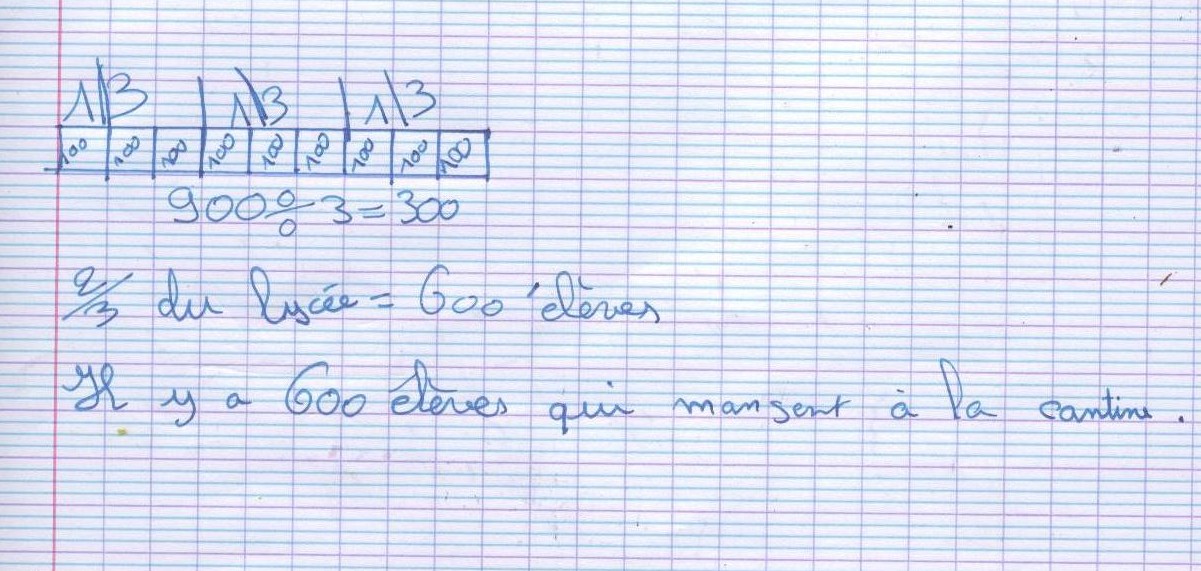 1/3 1/3 1/3
100 100 100 100 100 100 100 100 100
900 ÷ 3 = 300
2/3 du lycée = 600 élèves
Il y a 600 élèves qui mangent à la cantine.